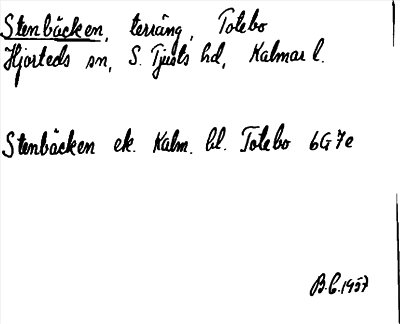 Stenbäcken, terräng, Totebo
Hjorteds sn, S. Tjusts hd, Kalmar l.
Stenbäcken ek. Kalm. bl. Totebo 6G 7e
B.C. 1957